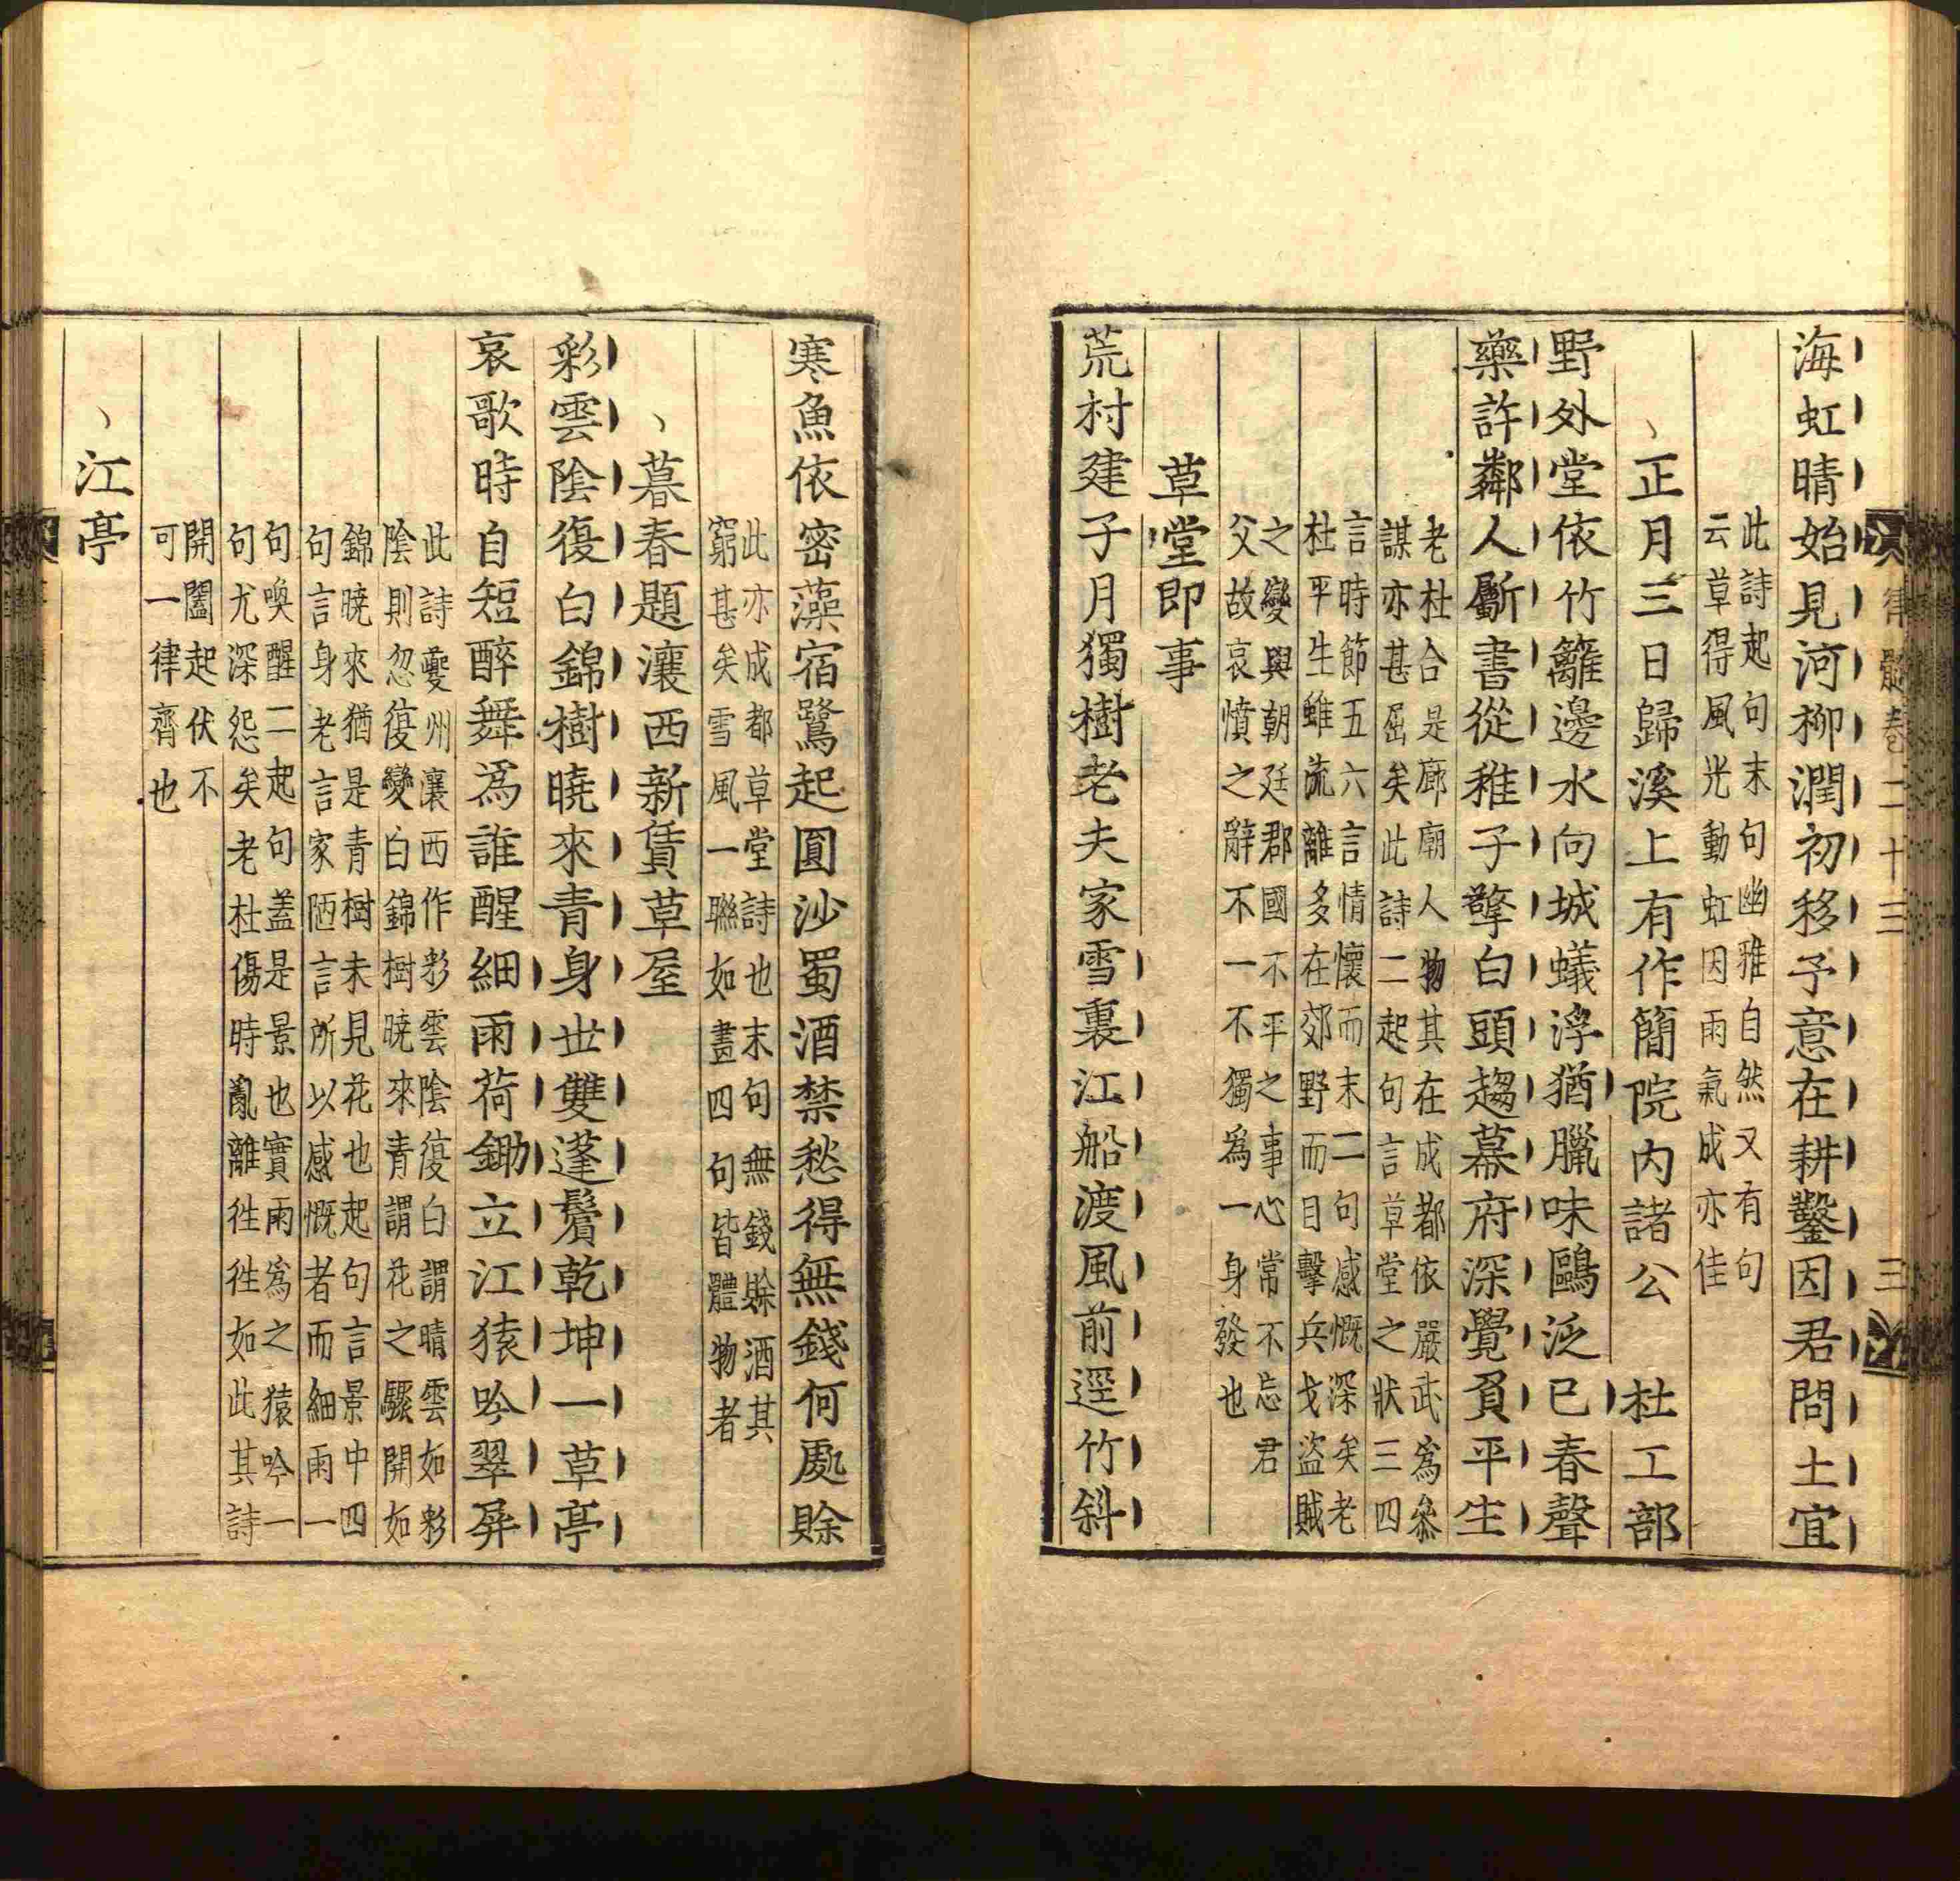 律髓卷二十三
三
海虹晴始見河柳潤初移予意在耕鑿因君問土宜
此詩起句末句幽雅自然又有句
云草得風光動虹因雨氣成亦佳
正月三日歸溪上有作簡院內諸公 杜工部
野外堂依竹籬邊水向城蟻浮猶臘味鷗泛已春聲
藥許鄰人斸書從稚子擎白頭趨幕府深覺負平生
老杜合是廊廟人物其在成都依嚴武為叅
謀亦甚屈矣此詩二起句言草堂之狀三四
言時節五六言情懷而末二句感慨深矣老
杜平生雖流離多在郊野而目擊兵戈盜賊
之變與朝廷郡國不平之事心常不忘君
父故哀憤之辭不一不獨為一身發也
草堂即事
荒村建子月獨樹老夫家雪裏江船渡風前逕竹斜
寒魚依密藻宿鷺起圓沙蜀酒禁愁得無錢何處賒
此亦成都草堂詩也末句無錢賒酒其
窮甚矣雪風一聯如畫四句皆體物者
暮春題瀼西新賃草屋
彩雲陰復白錦樹曉來青身世雙蓬鬢乾坤一草亭
哀歌時自短醉舞為誰醒細雨荷鋤立江猿吟翠屏
此詩夔州瀼西作彩雲陰復白謂晴雲如彩
陰則忽復變白錦樹曉來青謂花之驟開如
錦曉來猶是青樹未見花也起句言景中四
句言身老言家陋言所以感慨者而細雨一
句喚醒二起句蓋是景也實雨為之猿吟一
句尤深怨矣老杜傷時亂離徃徃如此其詩
開闔起伏不
可一律齊也
江亭